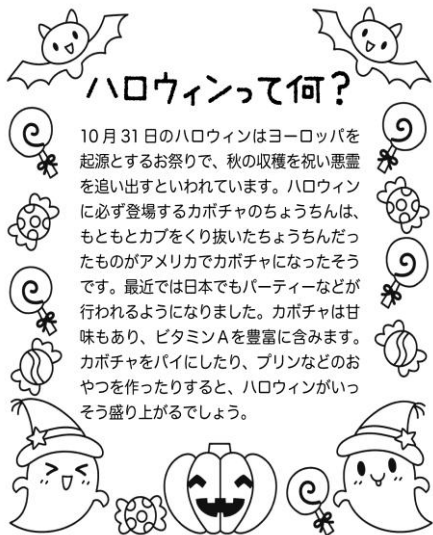 ハロウィンって何？
10月31日のハロウィンはヨーロッパを
起源とするお祭りで、秋の収穫を祝い悪霊
を追い出すといわれています。ハロウィン
に必ず登場するカボチャのちょうちんは、
もともとカブをくり抜いたちょうちんだっ
たものがアメリカでカボチャになったそう
です。最近では日本でもパーティーなどが
行われるようになりました。カボチャは甘
味もあり、ビタミンAを豊富に含みます。
カボチャをパイにしたり、プリンなどのお
やつを作ったりすると、ハロウィンがいっ
そう盛り上がるでしょう。